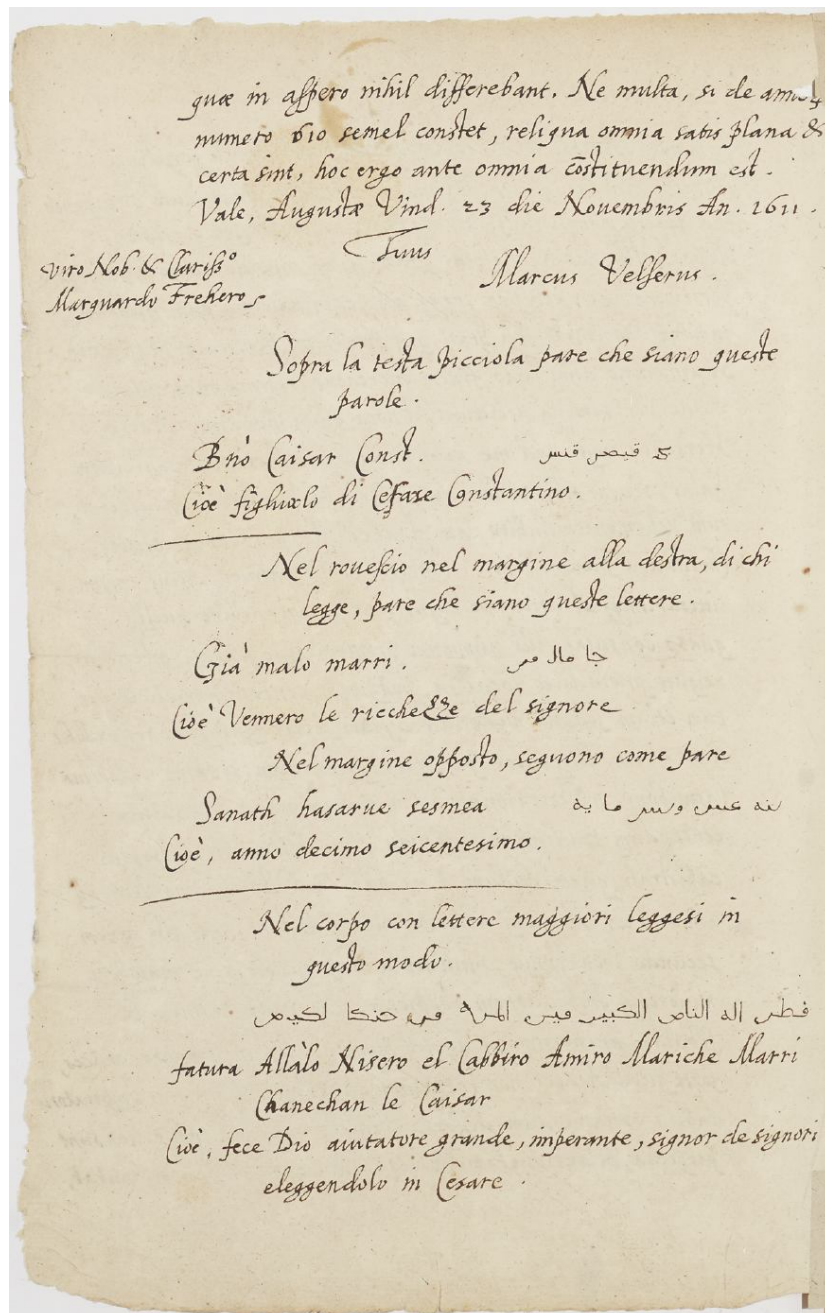 quæ in aspero nihil differebant. Ne multa, si de
numero 610 semel constet, reliqua omnia satis plana &
certa sint, hoc ergo ante omnia cōstituendum est.
Vale, Augustæ Vind. 23 die Novembris An. 1611.
Tuus
Viro Nob. & Clariss.º
Marcus Velserus.
Marquardo Frehero
Sopra la testa picciola pare che siano queste
parole.
Bnò Caisar Const. قيصر قنس
Cioè figliuolo di Cesare Constantino.
Nel rovescio nel margine alla destra, di chi
legge, pare che siano queste lettere.
Già malo marri. جا مال مر
Cioè Vennero le ricchezze del signore
Nel margine opposto, seguono come pare
Sanath hasarue sesmea
Cioè, anno decimo seicentesimo.
Nel corpo con lettere maggiori leggesi in
questo modo.
اله الناص الكبير
fatura Allàlo Nisero el Cabbiro Amiro Mariche Marri
Chanechan le Caisar
Cioè, fece Dio aiutatore grande, imperante, signor de signori
eleggendolo in Cesare.